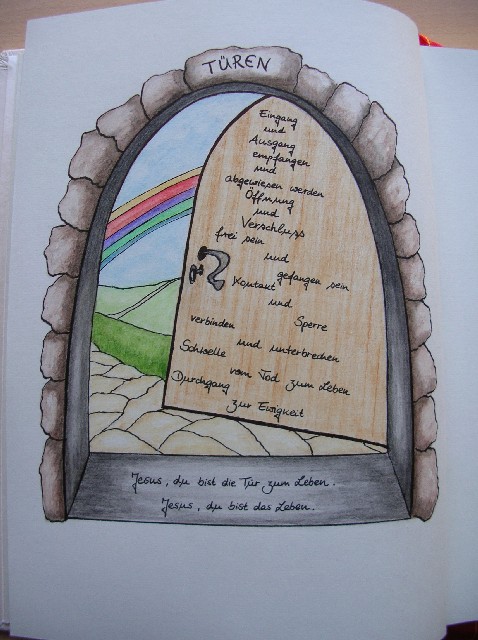 TÜREN
Eingang
und
Ausgang
empfangen
und
abgewiesen werden
Öffnung
und
Verschluss
frei sein
und
gefangen sein
Kontakt
und
Sperre
verbinden
und unterbrechen
Schwelle
vom Tod zum Leben
Durchgang
zur Ewigkeit
Jesus, du bist die Tür zum Leben.
Jesus, du bist das Leben.